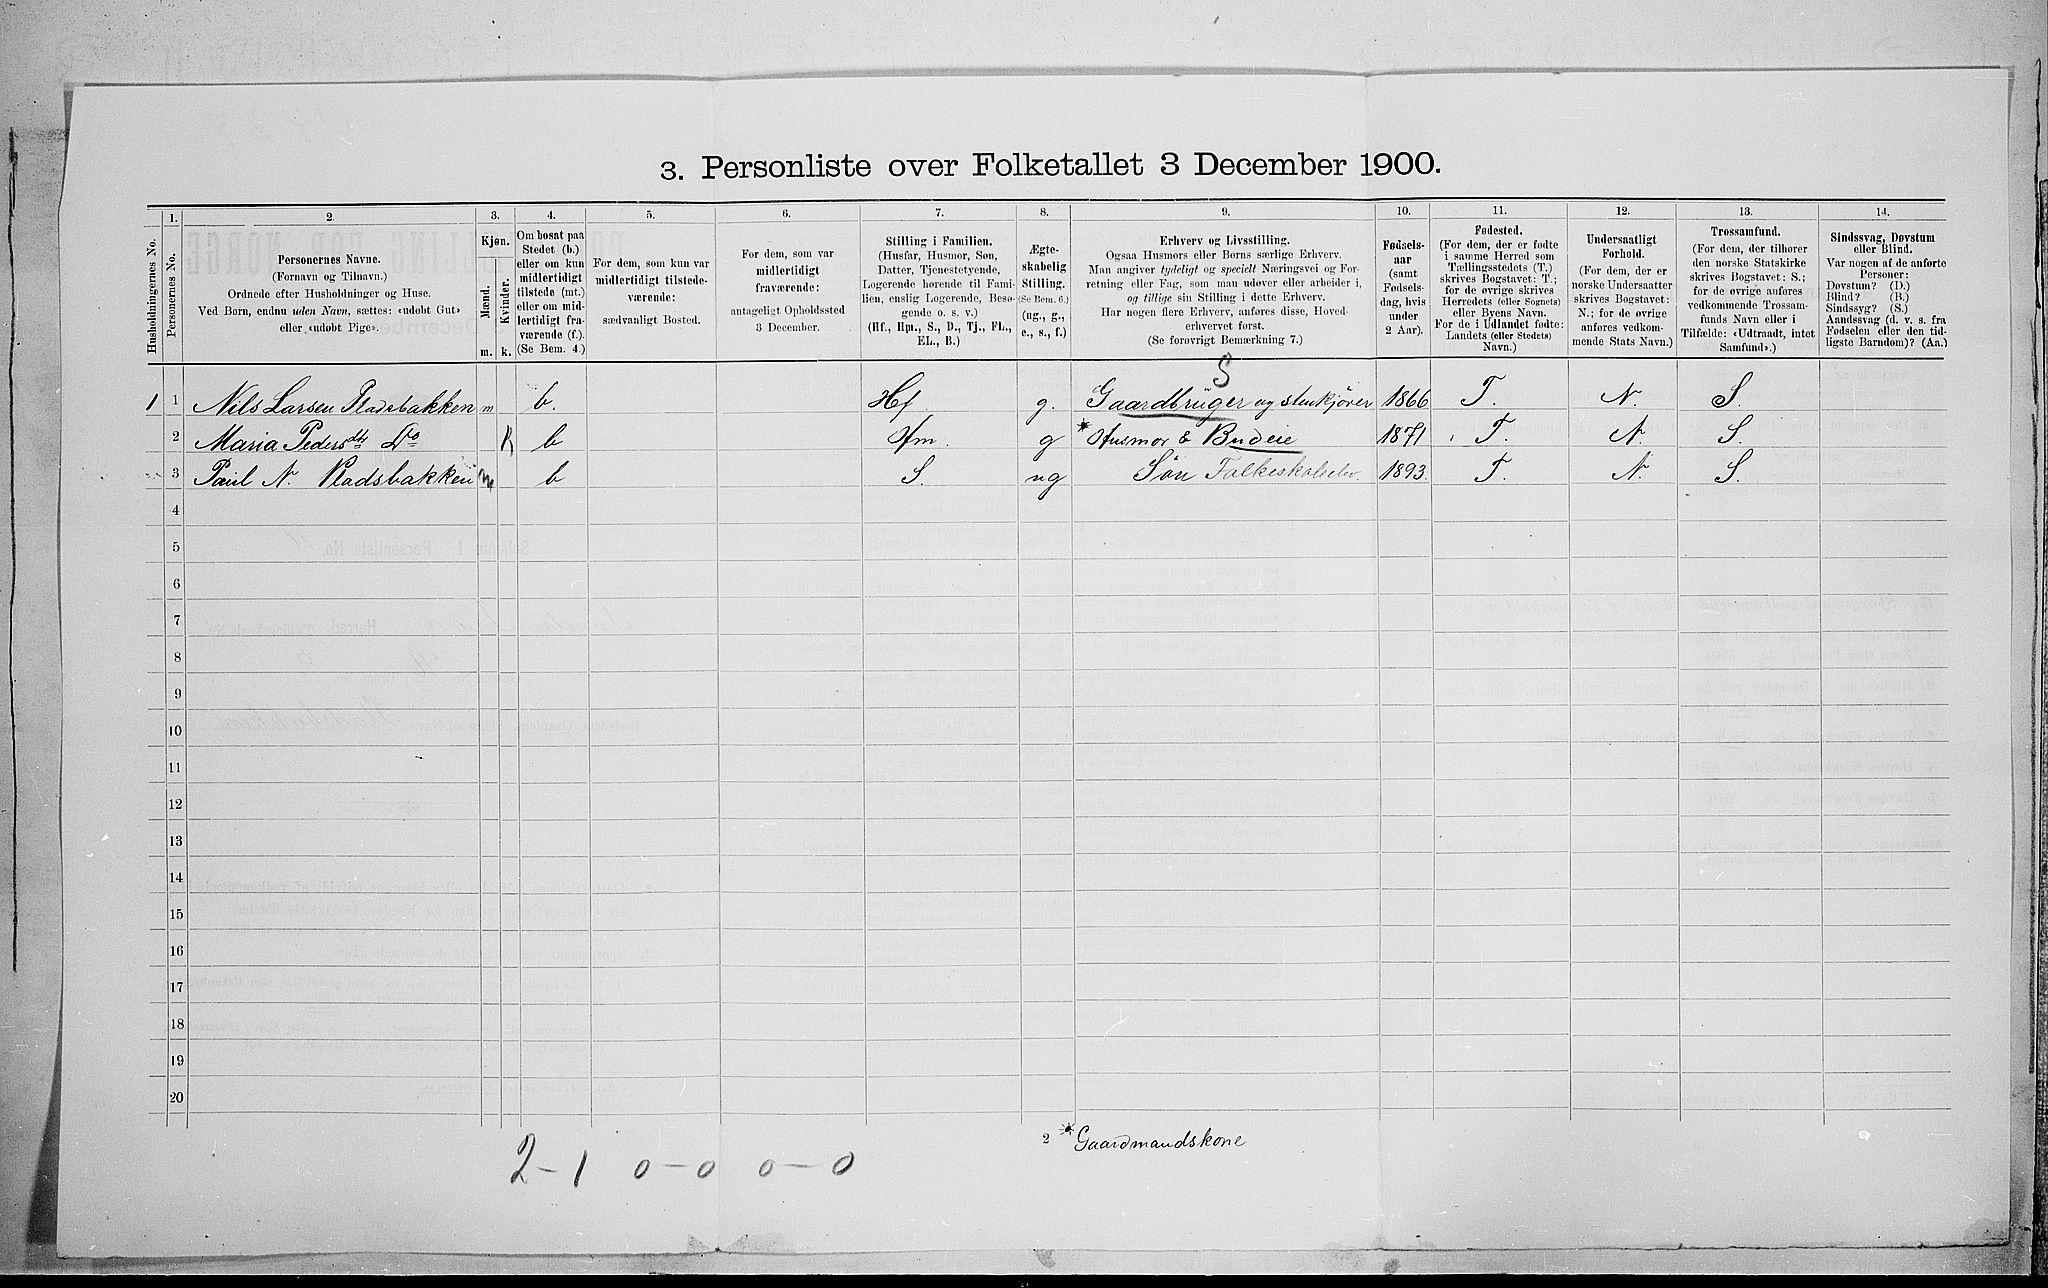 3. Personliste over Folketallet 3 December 1900.
1. 2. 3. 4. 5. 6. 7. 8. 9. 10. 11. 12. 13. 14.
Husholdningernes No.
Personernes No.
Personernes Navne.
(Fornavn og Tilnavn.)
Ordnede efter Husholdninger og Huse.
Ved Børn, endnu uden Navn, sættes: «udøbt Gut»
eller «udøbt Pige».
Kjøn.
Mænd.
Kvinder.
m. k.
Om bosat paa
Stedet (b.)
eller om kun
midlertidigt
tilstede (mt.)
eller om mid-
lertidigt fra-
værende (f.).
(Se Bem. 4.)
For dem, som kun var
midlertidigt tilstede-
værende:
sædvanligt Bosted.
For dem, som var
midlertidigt
fraværende:
antageligt Opholdssted
3 December.
Stilling i Familien.
(Husfar, Husmor, Søn,
Datter, Tjenestetyende,
Logerende hørende til Fami-
lien, enslig Logerende, Besø-
gende o. s. v.)
(Hf., Hm., S., D., Tj., FL.,
EL., B.)
Ægte-
skabelig
Stilling.
(Se Bem. 6.)
(ug., g.,
e., s., f.)
Erhverv og Livsstilling.
Ogsaa Husmors eller Børns særlige Erhverv.
Man angiver tydeligt og specielt Næringsvei og For-
retning eller Fag, som man udøver eller arbeider i,
og tillige sin Stilling i dette Erhverv.
Har nogen flere Erhverv, anføres disse, Hoved-
erhvervet først.
(Se forøvrigt Bemærkning 7.)
Fødsels-
aar
(samt
Fødsels-
dag, hvis
under
2 Aar).
Fødested.
(For dem, der er fødte
i samme Herred som
Tællingsstedets (T.)
skrives Bogstavet: T.;
for de øvrige skrives
Herredets (eller Sognets)
eller Byens Navn.
For de i Udlandet fødte:
Landets (eller Stedets)
Navn.)
Undersaatligt
Forhold.
(For dem, der er
norske Undersaatter
skrives Bogstavet:
N.; for de øvrige
anføres vedkom-
mende Stats Navn.)
Trossamfund.
(For dem, der tilhører
den norske Statskirke
skrives Bogstavet: S.;
for de øvrige anføres
vedkommende Trossam-
funds Navn eller i
Tilfælde: «Udtraadt, intet
Samfund».)
Sindssvag, Døvstum
eller Blind.
Var nogen af de anførte
Personer:
Døvstum? (D.)
Blind? (B.)
Sindssyg? (S.)
Aandssvag (d. v. s. fra
Fødselen eller den tid-
ligste Barndom)? (Aa.)
S
1 1 Nils Larsen Pladsbakken m b. Hf g. Gaardbruger og stenkjører 1866 T. N. S.
2 Maria Pedersdtr Do K b Hm. g * Husmor & Budeie 1871 T. N. S.
3 Paul N. Pladsbakken m b S. ug Søn Folkeskoleelev. 1893. T. N. S.
4
5
6
7
8
9
10
11
12
13
14
15
16
17
18
19
20
2 * Gaardmandskone
2-1 0-0 0-0